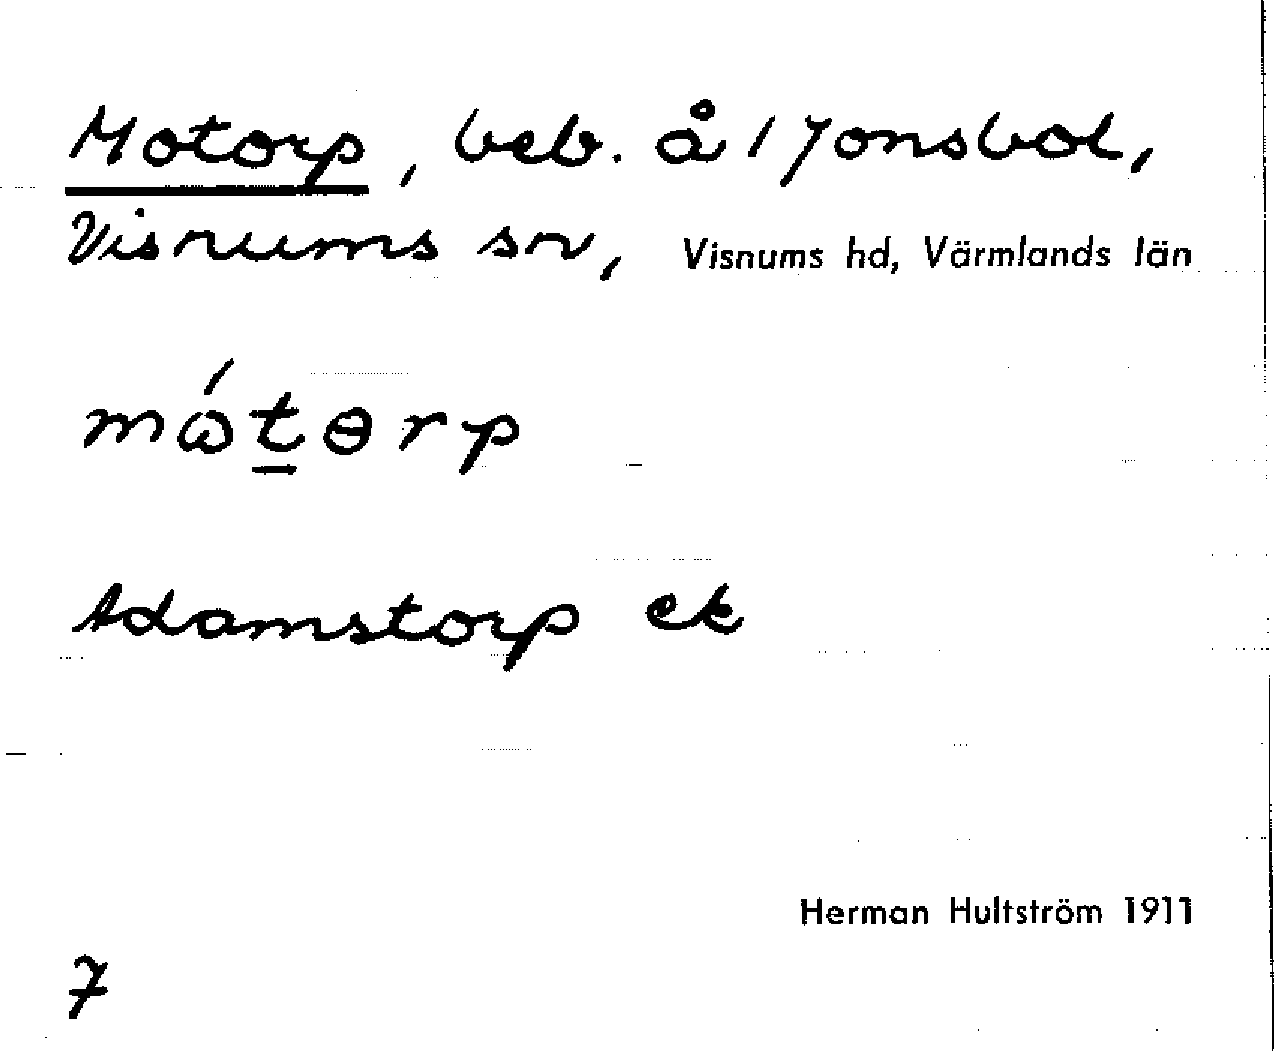 Motorp, beb. å 1/7 onsbol,
Visnums sn, Visnums hd, Värmlands län
mótɵrp
Adamstorp ek
Herman Hultström 1911
7